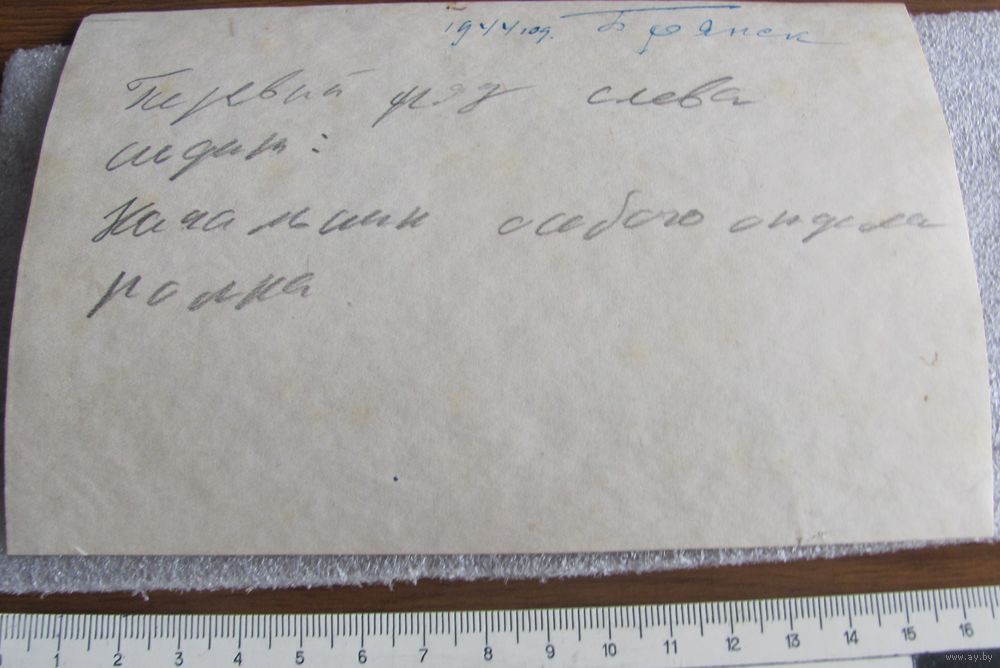 1944 год. Брянск
Первый ряд слева
сидит:
Начальник особого отдела
полка
1 2 3 4 5 6 7 8 9 10 11 12 13 14 15 16
www.ay.by